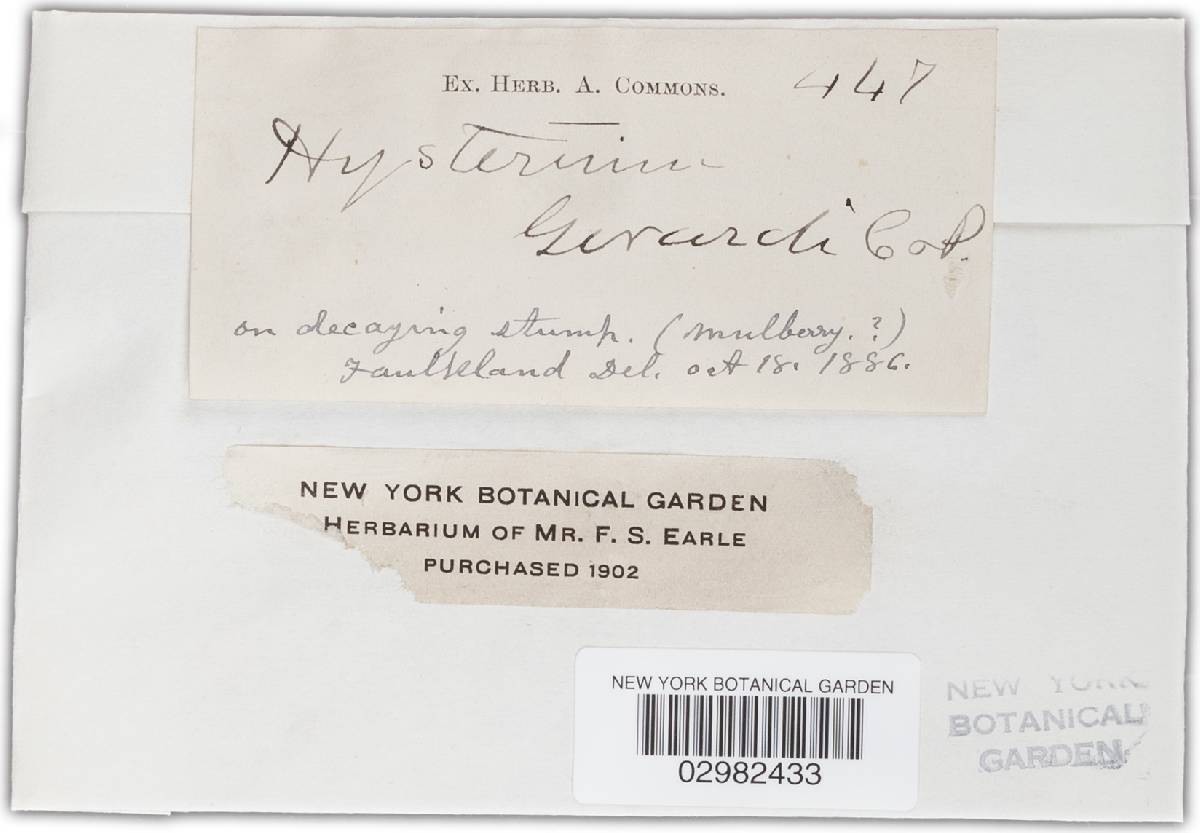 Ex. Herb. A. Commons. 447
Hysterium
Gerardi C & P.
on decaying stump. (mulberry.?)
Faulkland Del. oct 18. 1886.
NEW YORK BOTANICAL GARDEN
HERBARIUM OF MR. F. S. EARLE
PURCHASED 1902
NEW YORK BOTANICAL GARDEN
02982433
NEW YORK
BOTANICAL
GARDEN